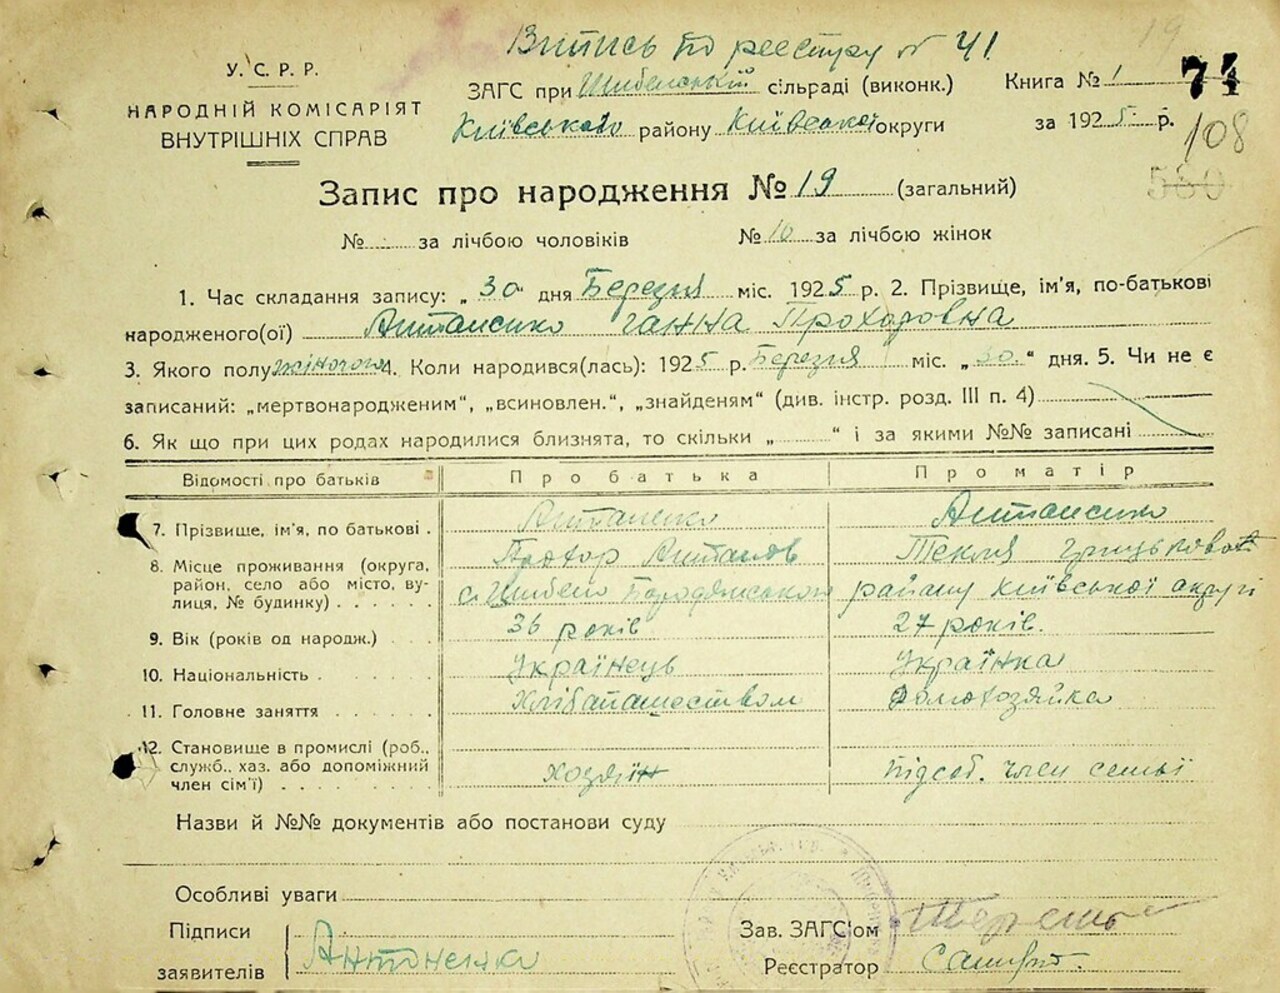 Витись по реєстру № 41
У. С. Р. Р.
НАРОДНІЙ КОМІСАРІЯТ
ВНУТРІШНІХ СПРАВ
ЗАГС при Шибенській сільраді (виконк.)
Київського району Київської округи
Книга № 1
за 1925 р.
108
Запис про народження № 19 (загальний)
№ за лічбою чоловіків № 10 за лічбою жінок
1. Час складання запису: „30“ дня Березня міс. 1925 р. 2. Прізвище, ім'я, по-батькові
народженого(ої) Антаненко Ганна Прохоровна
3. Якого полу жіночого 4. Коли народився(лась): 1925 р. Березня міс. „30“ дня. 5. Чи не є
записаний: „мертвонародженим“, „всиновлен.“, „знайденям“ (див. інстр. розд. III п. 4)
6. Як що при цих родах народилися близнята, то скільки „ “ і за якими №№ записані
Відомості про батьків Про батька Про матір
7. Прізвище, ім'я, по батькові . Антаненко Антаненко
Прохор Антанов Текля Грицьковна
8. Місце проживання (округа, район, село або місто, вулиця, № будинку) с. Шибено Бородянського району Київської округі
9. Вік (років од народж.) 36 років 27 років.
10. Національність Українець Українка
11. Головне заняття Хлібапашеством Домохозяйка
12. Становище в промислі (роб., служб., хаз. або допоміжний член сім'ї) хозяїн підсоб. член семьї
Назви й №№ документів або постанови суду
Особливі уваги
Підписи
заявителів Антоненко
Зав. ЗАГС'ом
Реєстратор